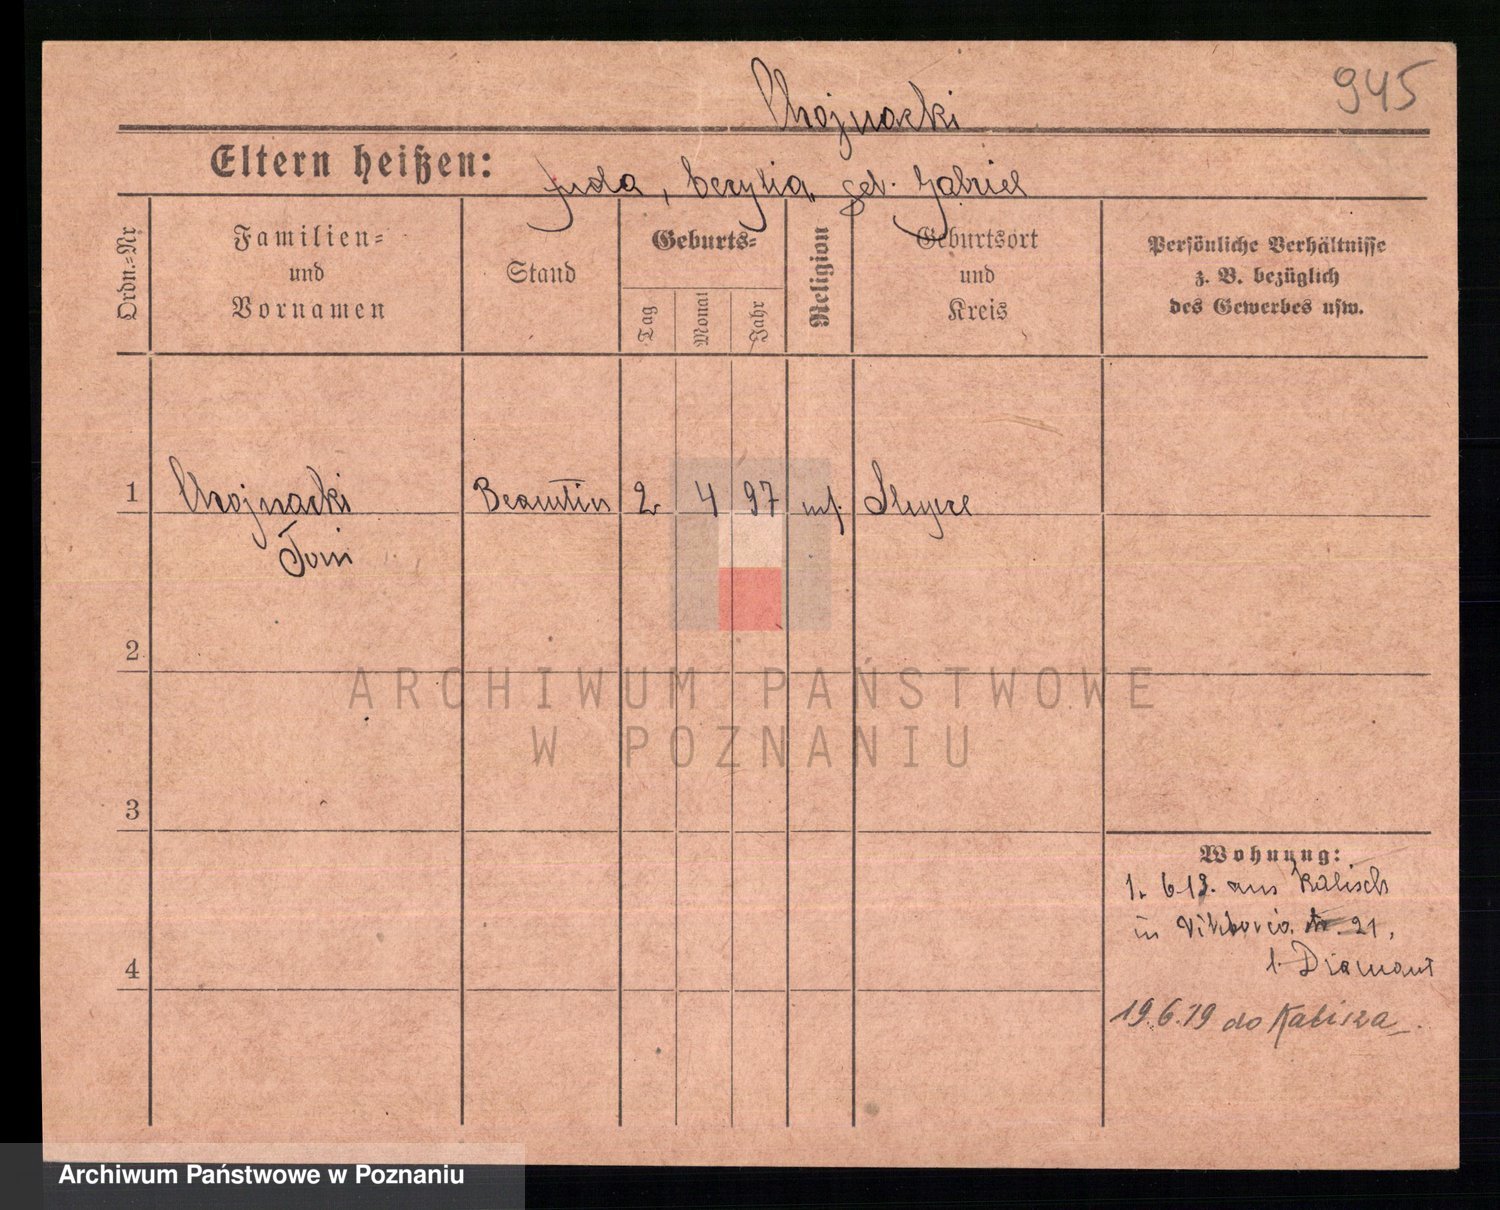 945
Chojnacki
Eltern heißen: Juda, Cecylia geb. Gabriel
Ordn.-Nr
Familien-
und
Vornamen
Stand
Geburts-
Tag
Monat
Jahr
Religion
Geburtsort
und
Kreis
Persönliche Verhältnisse
z. B. bezüglich
des Gewerbes usw.
1 Chojnacki Beamtin 2 4 97 Slupce
Toni
2
3
4
Wohnung:
1. 6 19. aus Kalisch
in Viktoria 21,
b. Diamant
19.6.19 do Kalisza
ARCHIWUM PAŃSTWOWE
W POZNANIU
Archiwum Państwowe w Poznaniu